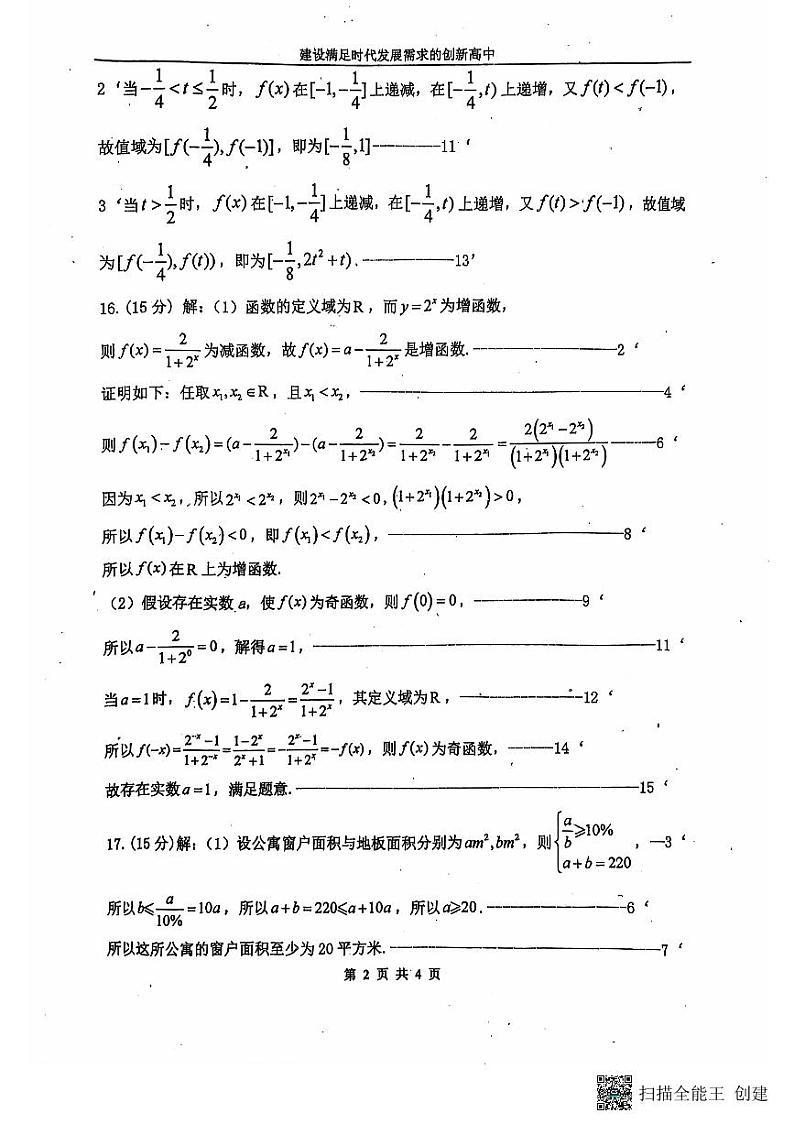 建设满足时代发展需求的创新高中
2‘当-1/4<t≤1/2时，f(x)在[-1,-1/4]上递减，在[-1/4,t)上递增，又f(t)<f(-1)，
故值域为[f(-1/4),f(-1)]，即为[-1/8,1]————11‘
3‘当t>1/2时，f(x)在[-1,-1/4]上递减，在[-1/4,t)上递增，又f(t)>f(-1)，故值域
为[f(-1/4),f(t))，即为[-1/8,2t²+t).————13’
16.(15分) 解：(1) 函数的定义域为R，而y=2ˣ为增函数，
则f(x)=2/(1+2ˣ)为减函数，故f(x)=a-2/(1+2ˣ)是增函数.————2‘
证明如下：任取x₁,x₂∈R，且x₁<x₂，————4‘
则f(x₁)-f(x₂)=(a-2/(1+2^x₁))-(a-2/(1+2^x₂))=2/(1+2^x₂)-2/(1+2^x₁)=2(2^x₁-2^x₂)/((1+2^x₁)(1+2^x₂))————6‘
因为x₁<x₂，所以2^x₁<2^x₂，则2^x₁-2^x₂<0,(1+2^x₁)(1+2^x₂)>0，
所以f(x₁)-f(x₂)<0，即f(x₁)<f(x₂)，————8‘
所以f(x)在R上为增函数.
(2) 假设存在实数a，使f(x)为奇函数，则f(0)=0，————9‘
所以a-2/(1+2⁰)=0，解得a=1，————11‘
当a=1时，f(x)=1-2/(1+2ˣ)=(2ˣ-1)/(1+2ˣ)，其定义域为R，————12‘
所以f(-x)=(2⁻ˣ-1)/(1+2⁻ˣ)=(1-2ˣ)/(2ˣ+1)=-(2ˣ-1)/(1+2ˣ)=-f(x)，则f(x)为奇函数，————14‘
故存在实数a=1，满足题意.————15‘
17.(15分)解：(1) 设公寓窗户面积与地板面积分别为am²,bm²，则{a/b≥10%，a+b=220，—3‘
所以b≤a/10%=10a，所以a+b=220≤a+10a，所以a≥20.————6‘
所以这所公寓的窗户面积至少为20平方米.————7‘
第 2 页 共 4 页
扫描全能王 创建